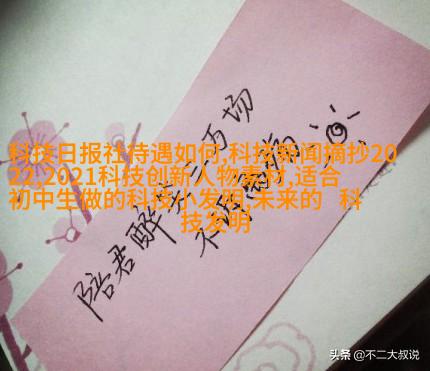 科技日报社待遇如何,科技新闻摘抄20
22,2021科技创新人物素材,适合
初中生做的科技小发明,未来的 科
技发明
陪君醉笑三万场
不诉离殇
头条 @不二大叔说